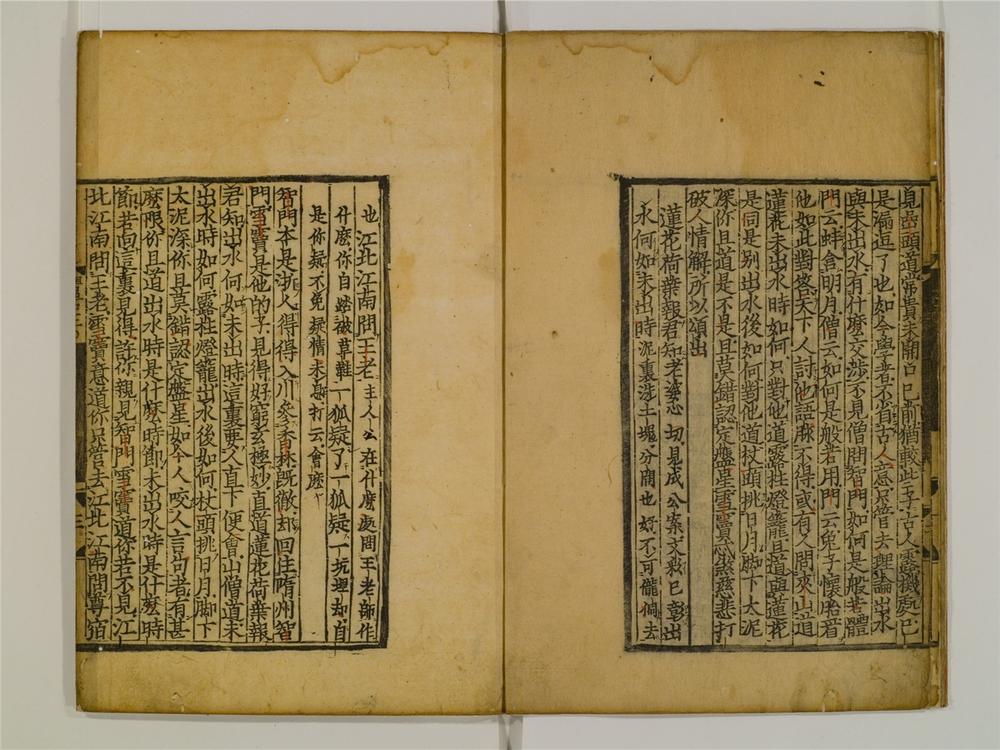 見嵓頭道常貴未開口已前猶較些子古人露機處已
是漏逗了也如今學者不省古人意只管去理論出水
與未出水有什麼交涉不見僧問智門如何是般若體
門云蚌含明月僧云如何是般若用門云兔子懷胎看
他如此對答天下人討他語脉不得或有人問夾山道
蓮花未出水時如何只對他道露柱燈籠且道與蓮花
是同是別出水後如何對他道杖頭挑日月脚下太泥
深你且道是不是且莫錯認定盤星雪竇忒煞慈悲打
破人情解所以頌出
蓮花荷葉報君知老婆心切見成公案文彩已彰出
水何如未出時泥裏洗土塊分開也好不可儱侗去
也江北江南問王老主人公在什麼處問王老師作
什麼你自踏破草鞋一狐疑了一狐疑一坑埋却自
是你疑不免疑情未息打云會麼
智門本是浙人得得入川參香林既徹却回住隋州智
門雪竇是他的子見得好窮玄極妙直道蓮花荷葉報
君知出水何如未出時這裏要人直下便會山僧道未
出水時如何露柱燈籠出水後如何杖頭挑日月脚下
太泥深你且莫錯認定盤星如今人咬人言句者有甚
麼限你且道出水時是什麼時節未出水時是什麼時
節若向這裏見得許你親見智門雪竇道你若不見江
北江南問王老雪竇意道你只管去江北江南問尊宿